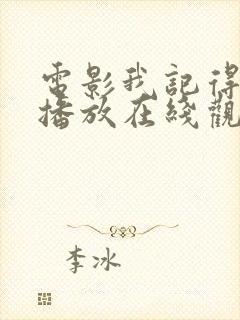 電影我記得
播放在綫觀
李冰